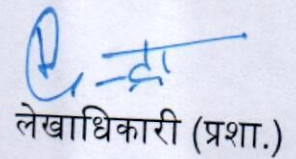 लेखाधिकारी (प्रशा.)